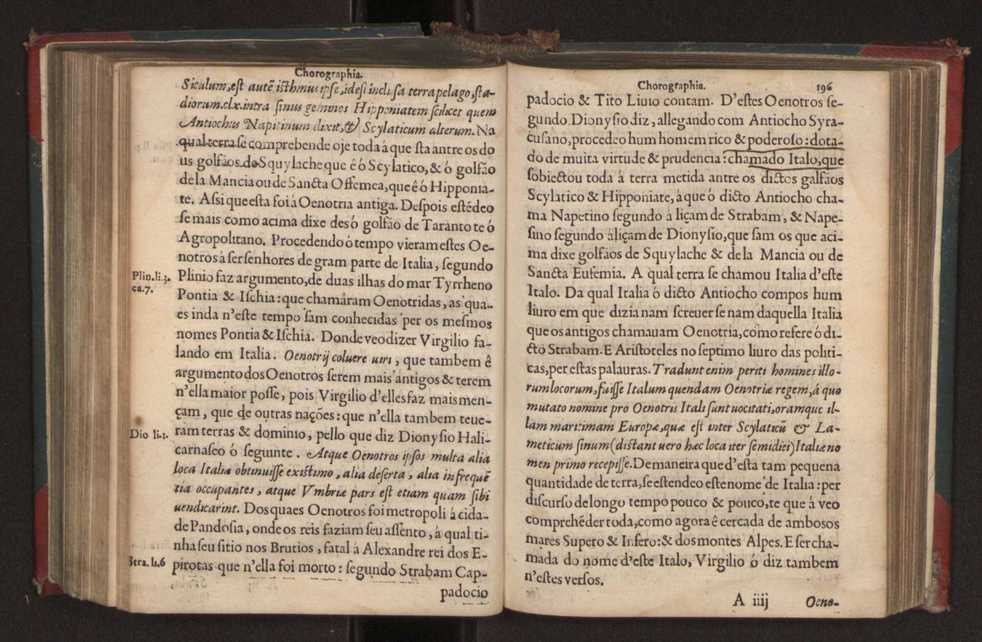 Chorographia.
Siculum, est autē isthmus ipse, idest inclusa terra pelago, sta-
diorum.clx.intra sinus geminos Hipponiatem scilicet quem
Antiochus Napitinum dixit, & Scylaticum alterum. Na
qual terra se comprehende oje toda à que sta antre os do
us golfãos.de Squylache que é ò Scylatico, & ò golfão
de la Mancia ou de Sancta Offemea, que é ò Hipponia-
te. Assi que esta foi à Oenotria antiga. Despois estēdeo
se mais como acima dixe des ò golfão de Taranto te ó
Agropolitano. Procedendo ò tempo vieram estes Oe-
notros à ser senhores de gram parte de Italia, segundo
Plin. li. 3.
ca. 7.
Plinio faz argumento, de duas ilhas do mar Tyrrheno
Pontia & Ischia: que chamáram Oenotridas, as qua-
es inda n'este tempo sam conhecidas per os mesmos
nomes Pontia & Ischia. Donde veo dizer Virgilio fa-
lando em Italia. Oenotrij coluere uiri, que tambem ê
argumento dos Oenotros serem mais antigos & terem
n'ella maior posse, pois Virgilio d'elles faz mais men-
çam, que de outras nações: que n'ella tambem teue-
Dio li. 1.
ram terras & dominio, pello que diz Dionysio Hali-
carnaseo ò seguinte. Atque Oenotros ipsos multa alia
loca Italiæ obtinuisse existimo, alia deserta, alia infrequē
tia occupantes, atque Vmbriæ pars est etiam quam sibi
uendicarint. Dos quaes Oenotros foi metropoli à cida-
de Pandosia, onde os reis faziam seu assento, à qual ti-
nha seu sitio nos Brutios, fatal à Alexandre rei dos E-
Stra. li. 6
pirotas que n'ella foi morto: segundo Strabam Cap-
padocio
Chorographia.
196
padocio & Tito Liuio contam. D'estes Oenotros se-
gundo Dionysio diz, allegando com Antiocho Syra-
cusano, procedeo hum homem rico & poderoso: dota-
do de muita virtude & prudencia: chamado Italo, que
sobiectou toda à terra metida antre os dictos galfãos
Scylatico & Hipponiate, à que ò dicto Antiocho cha-
ma Napetino segundo à liçam de Strabam, & Nape-
sino segundo à liçam de Dionysio, que sam os que aci-
ma dixe golfãos de Squylache & de la Mancia ou de
Sancta Eufemia. A qual terra se chamou Italia d'este
Italo. Da qual Italia ó dicto Antiocho compos hum
liuro em que dizia nam screuer se nam daquella Italia
que os antigos chamauam Oenotria, como refere ó di-
cto Strabam. E Aristoteles no septimo liuro das politi-
cas, per estas palauras. Tradunt enim periti homines illo-
rum locorum, fuisse Italum quendam Oenotriæ regem, á quo
mutato nomine pro Oenotris Itali sunt uocitati, oramque il-
lam maritimam Europæ, quæ est inter Scylaticū & La-
meticum sinum (distant uero hæc loca iter semidiei) Italiæ no
men primo recepisse. De maneira que d'esta tam pequena
quantidade de terra, se estendeo este nome de Italia: per
discurso de longo tempo pouco & pouco, te que à veo
comprehēder toda, como agora é cercada de ambosos
mares Supero & Infero: & dos montes Alpes. E ser cha-
mada do nome d'este Italo, Virgilio ò diz tambem
n'estes versos.
A iiij
Oeno-